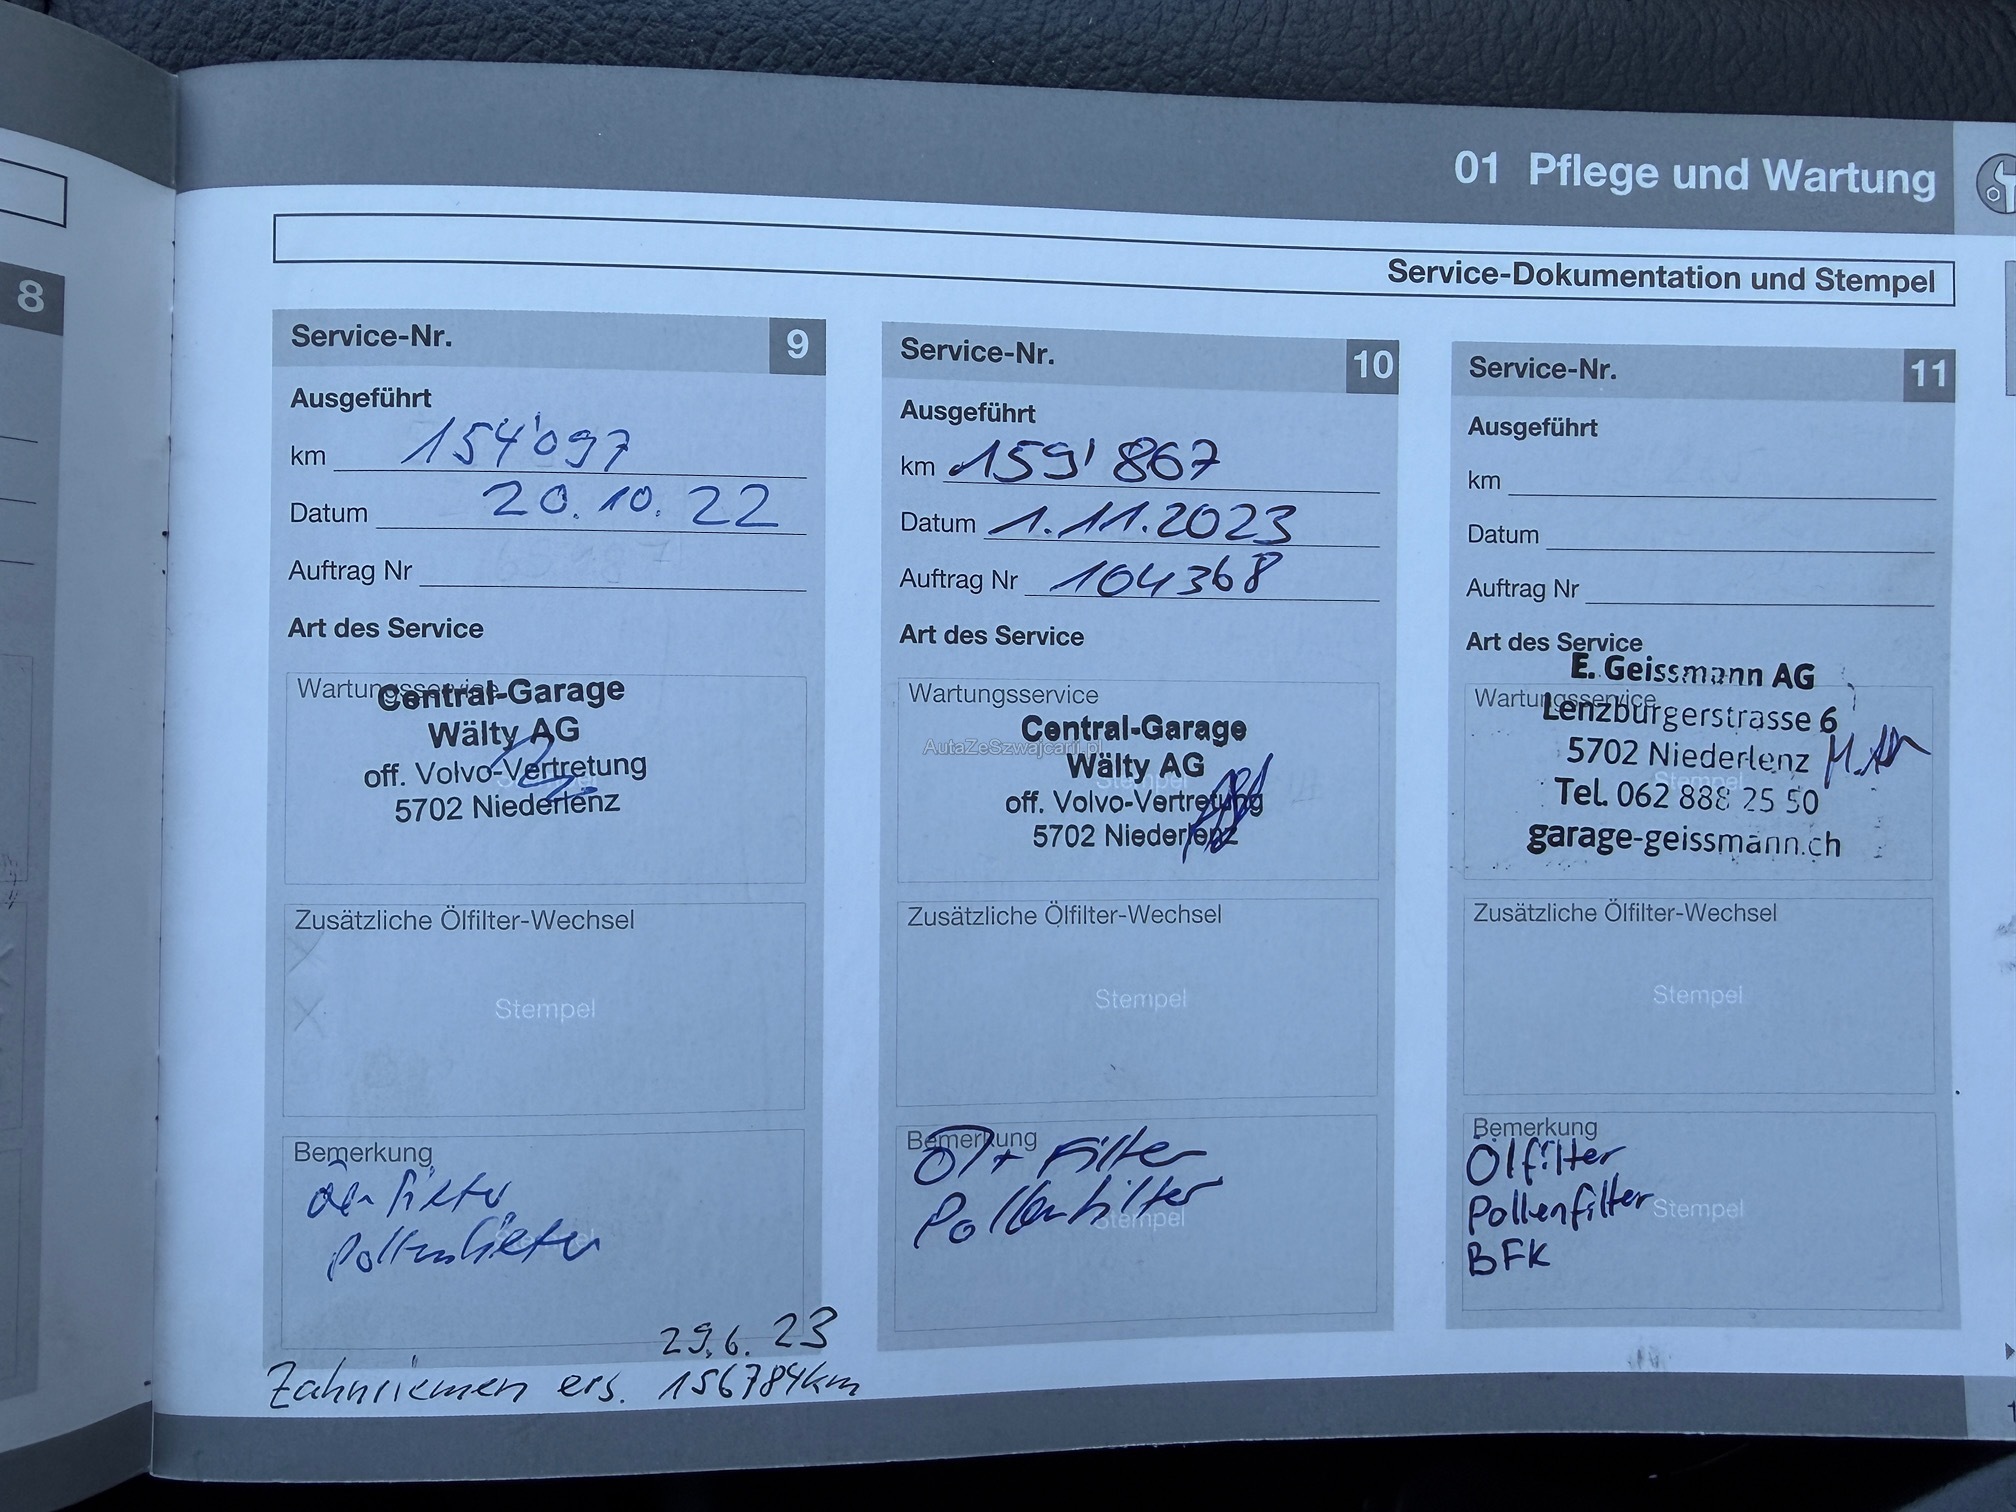 01 Pflege und Wartung
Service-Dokumentation und Stempel
8
Service-Nr. 9
Ausgeführt
km 154'097
Datum 20.10.22
Auftrag Nr
Art des Service
Wartungsservice
Central-Garage
Wälty AG
off. Volvo-Vertretung
5702 Niederlenz
Zusätzliche Ölfilter-Wechsel
Stempel
Bemerkung
Pollenfilter
29.6.23
Zahnriemen ers. 156784km
Service-Nr. 10
Ausgeführt
km 159'867
Datum 1.11.2023
Auftrag Nr 104368
Art des Service
Wartungsservice
AutaZeSzwajcarii.pl
Central-Garage
Wälty AG
off. Volvo-Vertretung
5702 Niederlenz
Zusätzliche Ölfilter-Wechsel
Stempel
Bemerkung
Öl + Filter
Pollenfilter
Stempel
Service-Nr. 11
Ausgeführt
km
Datum
Auftrag Nr
Art des Service
Wartungsservice
E. Geissmann AG
Lenzburgerstrasse 6
5702 Niederlenz
Stempel
Tel. 062 888 25 50
garage-geissmann.ch
Zusätzliche Ölfilter-Wechsel
Stempel
Bemerkung
Ölfilter
Pollenfilter
Stempel
BFK